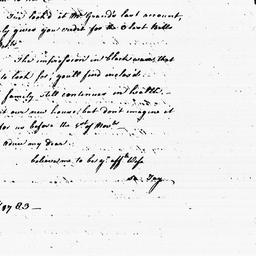 I've look'd at Mr Grands last account,
ly gives you credit for the 3 last Bills
The impression in black wax that
to look for, you'll find inclos'd.
family still continues in health.
our new house, but don't imagine it
for us before the 1st of Novr.
Adieu my dear
believe me to be yr. afft. Wife
Sa. Jay
1783 —